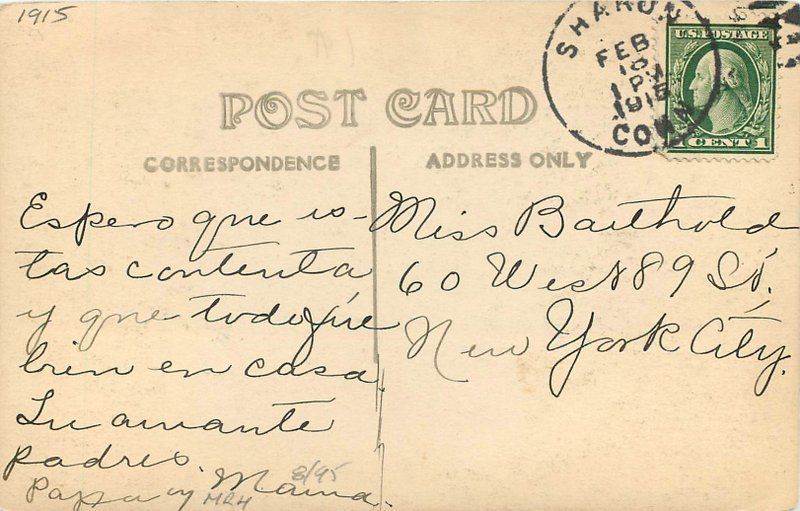 1915
SHARON
FEB
10
1 P
1915
CONN
U.S. POSTAGE
CENT 1
POST CARD
CORRESPONDENCE
ADDRESS ONLY
Espero que is-
tas contenta
y que todo fue
bien en casa
Tu amante
padres.
Papa y Mama.
8/95
MRH
Miss Barthold
60 West 89 St.
New York City.